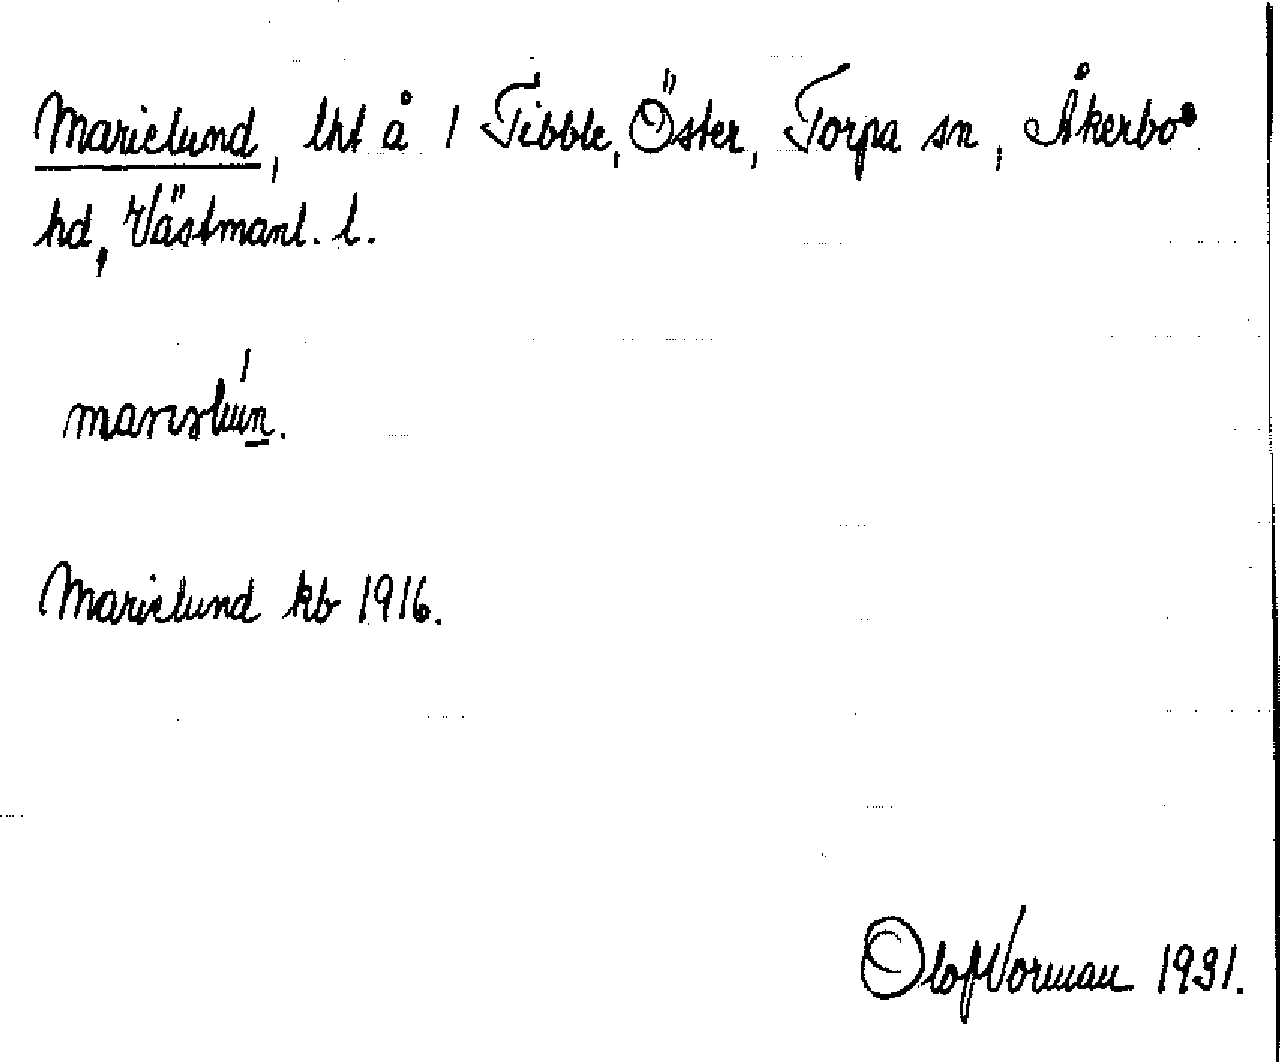 Marielund, lht å 1 Tibble, Öster, Torpa sn, Åkerbo
hd, Västmanl. l.
Marielund kb 1916.
Olof Norman 1931.